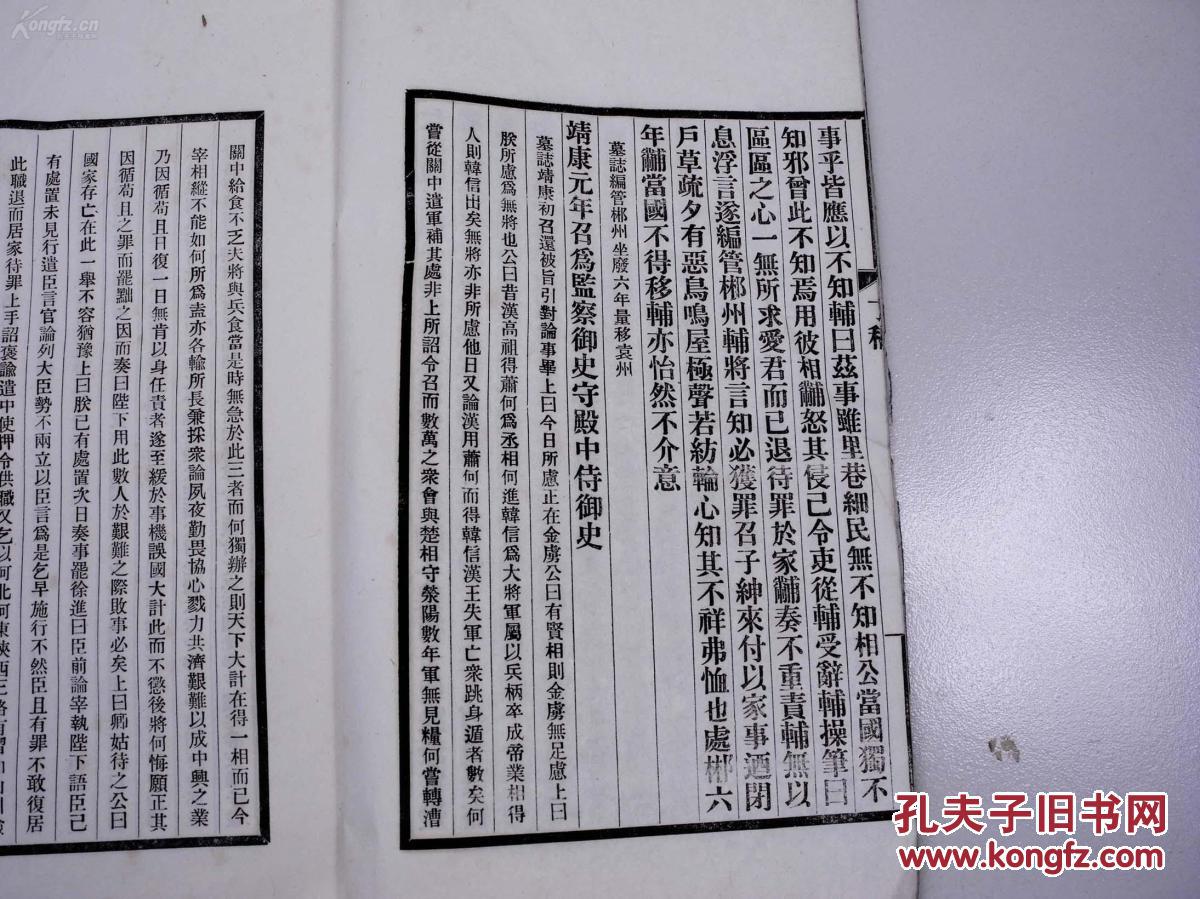 事乎皆應以不知輔曰茲事雖里巷細民無不知相公當國獨不
知邪曾此不知焉用彼相黼怒其侵己令吏從輔受辭輔操筆曰
區區之心一無所求愛君而已退待罪於家黼奏不重責輔無以
息浮言遂編管郴州輔將言知必獲罪召子紳來付以家事迺閉
戶草疏夕有惡鳥鳴屋極聲若紡輪心知其不祥弗恤也處郴六
年黼當國不得移輔亦怡然不介意
墓誌編管郴州坐廢六年量移袁州
靖康元年召爲監察御史守殿中侍御史
墓誌靖康初召還被旨引對論事畢上曰今日所慮正在金虜公曰有賢相則金虜無足慮上曰
朕所慮爲無將也公曰昔漢高祖得蕭何爲丞相何進韓信爲大將軍屬以兵柄卒成帝業相得
人則韓信出矣無將亦非所慮他日又論漢用蕭何而得韓信漢王失軍亡衆跳身遁者數矣何
嘗從關中遣軍補其處非上所詔令召而數萬之衆會與楚相守滎陽數年軍無見糧何嘗轉漕
關中給食不乏夫將與兵食當是時無急於此三者而何獨辦之則天下大計在得一相而已今
宰相縱不能如何所爲盍亦各輸所長兼採衆論夙夜勤畏協心戮力共濟艱難以成中興之業
乃因循苟且日復一日無肯以身任責者遂至緩於事機誤國大計此而不懲後將何悔願正其
因循苟且之罪而罷黜之因而奏曰陛下用此數人於艱難之際敗事必矣上曰卿姑待之公曰
國家存亡在此一舉不容猶豫上曰朕已有處置次日奏事罷徐進曰臣前論宰執陛下語臣已
有處置未見行遣臣言官論列大臣勢不兩立以臣言爲是乞早施行不然臣且有罪不敢復居
此職退而居家待罪上手詔褒諭遣中使押令供職又乞以河北河東陝西三路
Kongfz.cn
孔夫子旧书网
www.kongfz.com